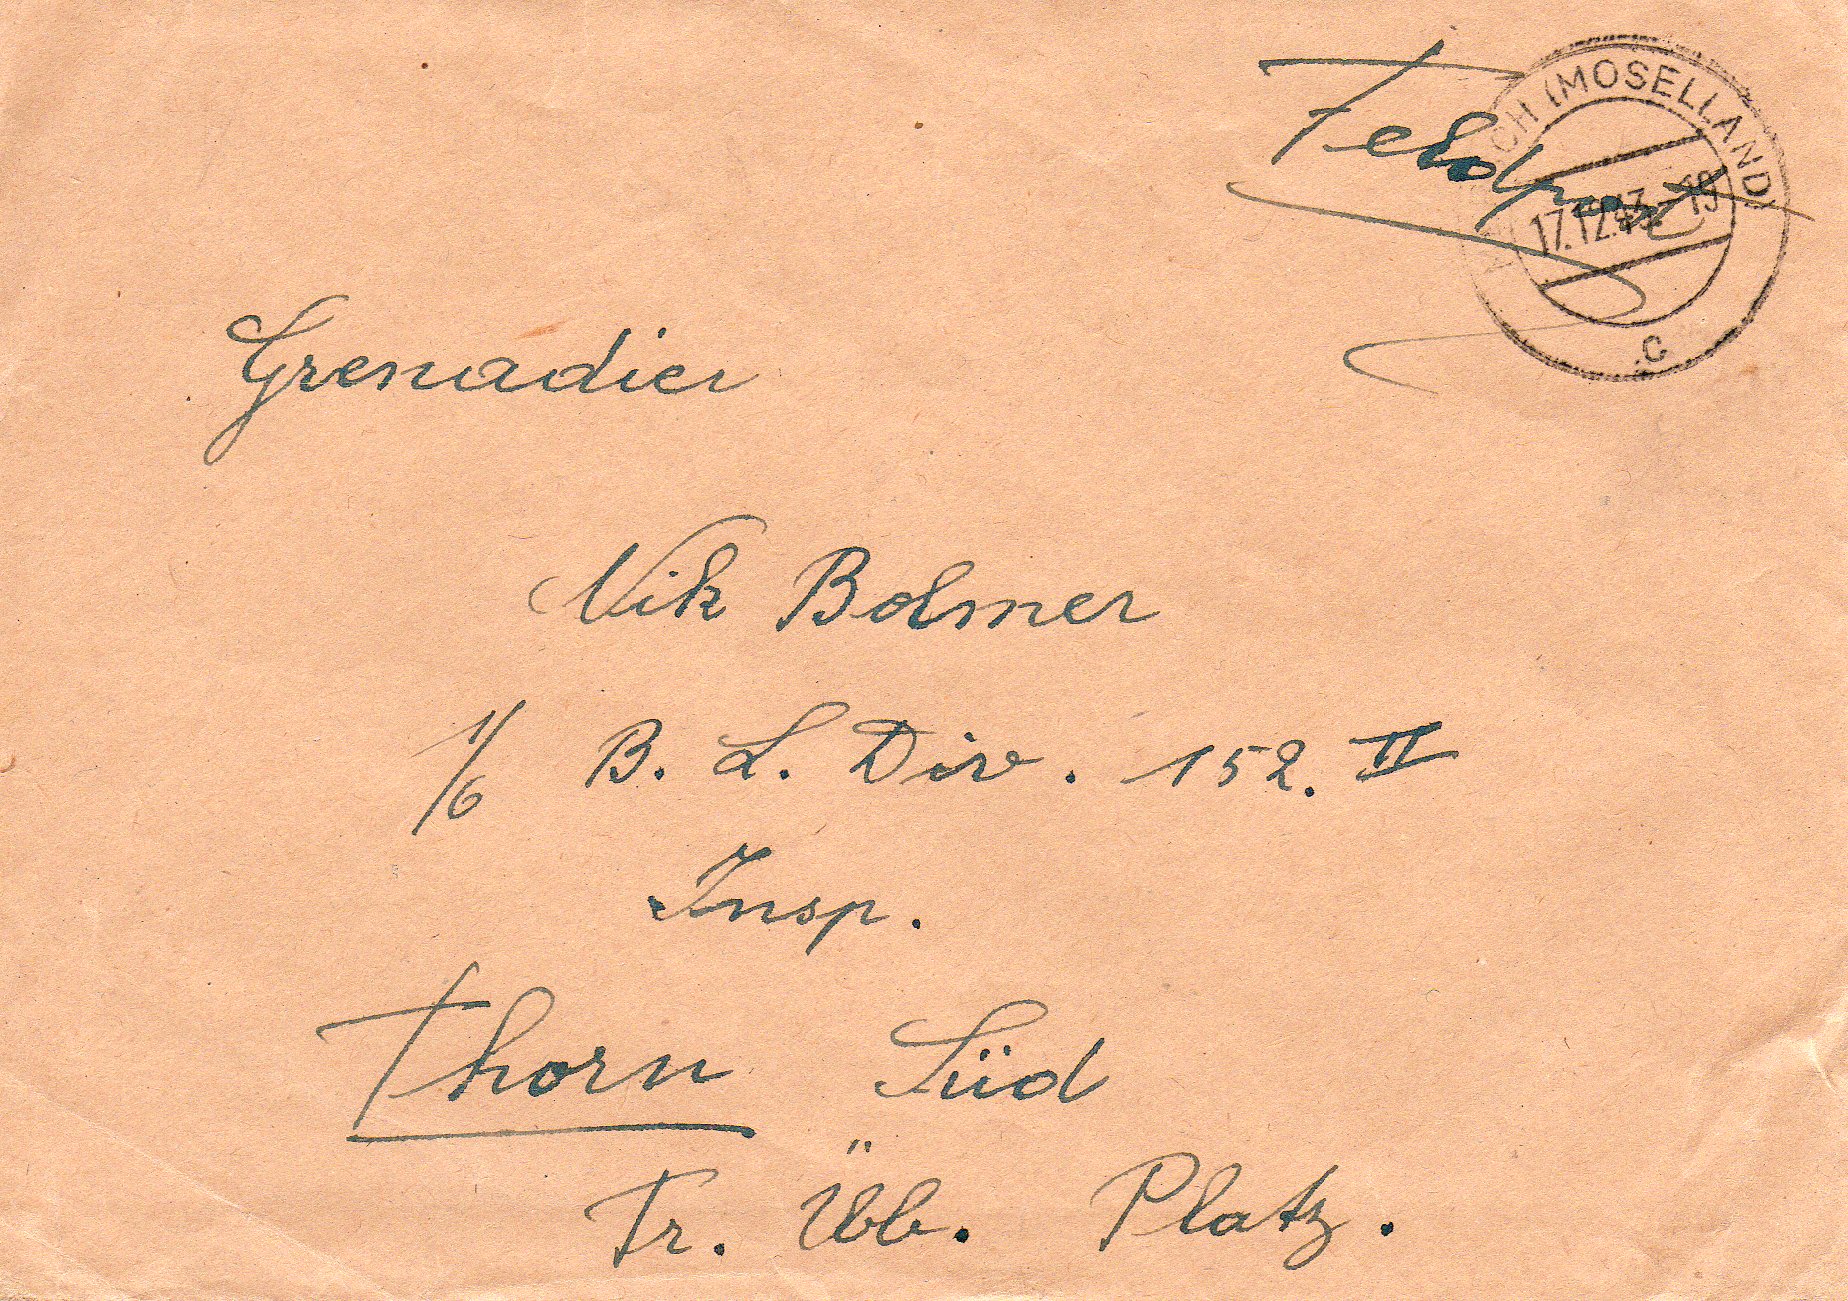 Feldpost
CH (MOSELLAND)
17.12.43.-19
c
Grenadier
Nik Bolmer
1/6 B. L. Div. 152. II
Insp.
Thorn Süd
Tr. Üb. Platz.